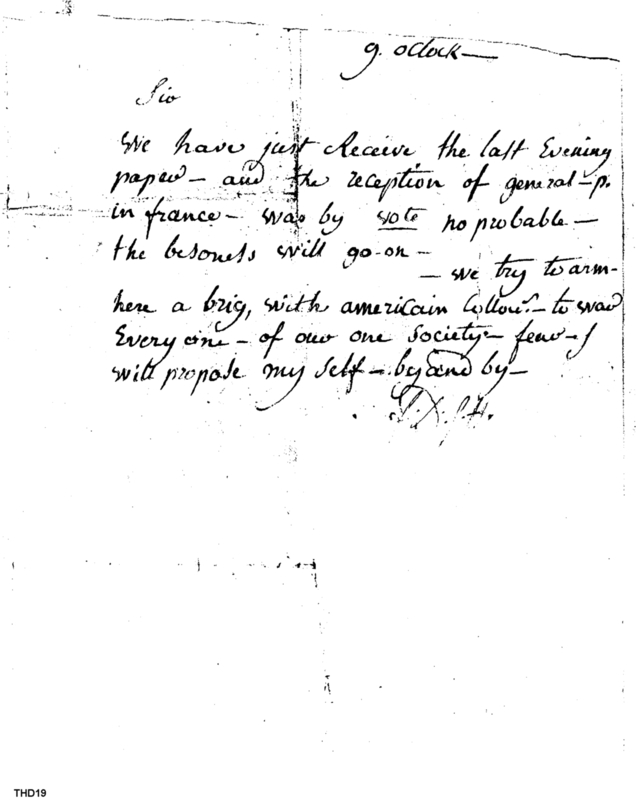 9. oclock —
Sir
We have just Receive the last Evening
paper — and the reception of general — p.
in france — war by vote no probable —
the besoness will go-on —
— we try to arm —
here a brig, with americain Collour.s — to war
Every one — of our one society — few — I
will propose my self — by and by —
THD19